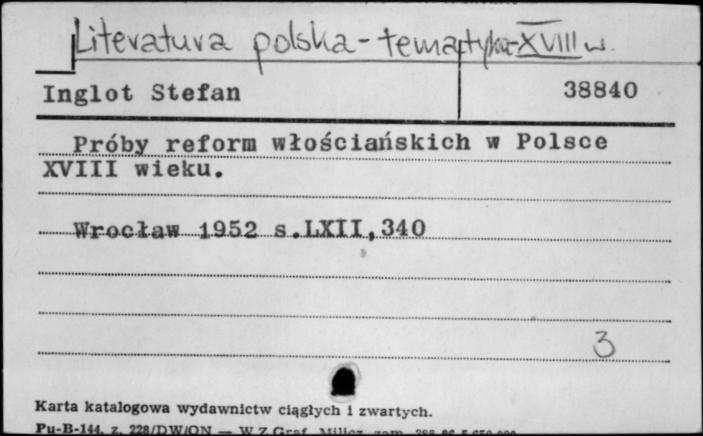 Literatura polska - tematyka - XVIII w.
Inglot Stefan 38840
Próby reform włościańskich w Polsce
XVIII wieku.
Wrocław 1952 s.LXII,340
3
Karta katalogowa wydawnictw ciągłych i zwartych.
Pu-B-144. z. 228/DW/ON — W Z Graf Milicz zam.